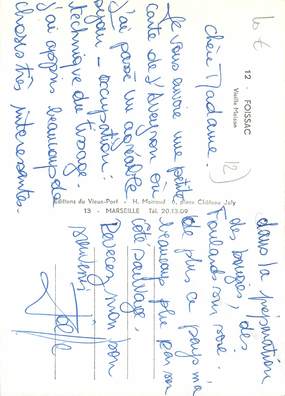 10 €
12 - FOISSAC
Vieille Maison
Chère Madame.
12
Je vous envoie une petite
carte de l'Aveyron où
j'ai passé un agréable
séjour - occupation :
technique du tissage.
j'ai appris beaucoup de
choses très intéressantes.
Editions du Vieux-Port - H. Moiroud 6, place Château Joly
13 - MARSEILLE Tél. 20.13.09
dans la préparation
des bougies, des
foulards soie.
de plus ce pays m'a
beaucoup plu par son
côté sauvage.
Recevez mon bon
souvenir
Joëlle